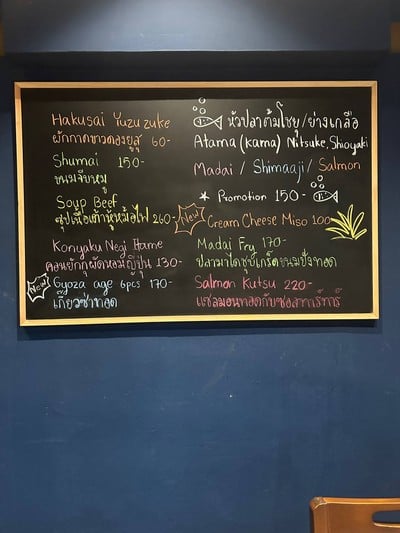 Hakusai Yuzuzuke
ผักกาดขาวดองยูสุ 60-
Shumai 150-
ขนมจีบหมู
Soup Beef
ซุปเนื้อเต้าหู้หม้อไฟ 260-
Konyaku Negi Itame
คอนยักกุผัดหอมญี่ปุ่น 130-
New
Gyoza age 6pcs 170-
เกี๊ยวซ่าทอด
หัวปลาต้มโชยุ/ย่างเกลือ
Atama (kama) Nitsuke, Shioyaki
Madai / Shimaaji / Salmon
Promotion 150-
New
Cream Cheese Miso 100
Madai Fry 170-
ปลามาไดชุปเกร็ดขนมปังทอด
Salmon Kutsu 220-
แซลมอนทอดกับซอสทาร์ทาร์